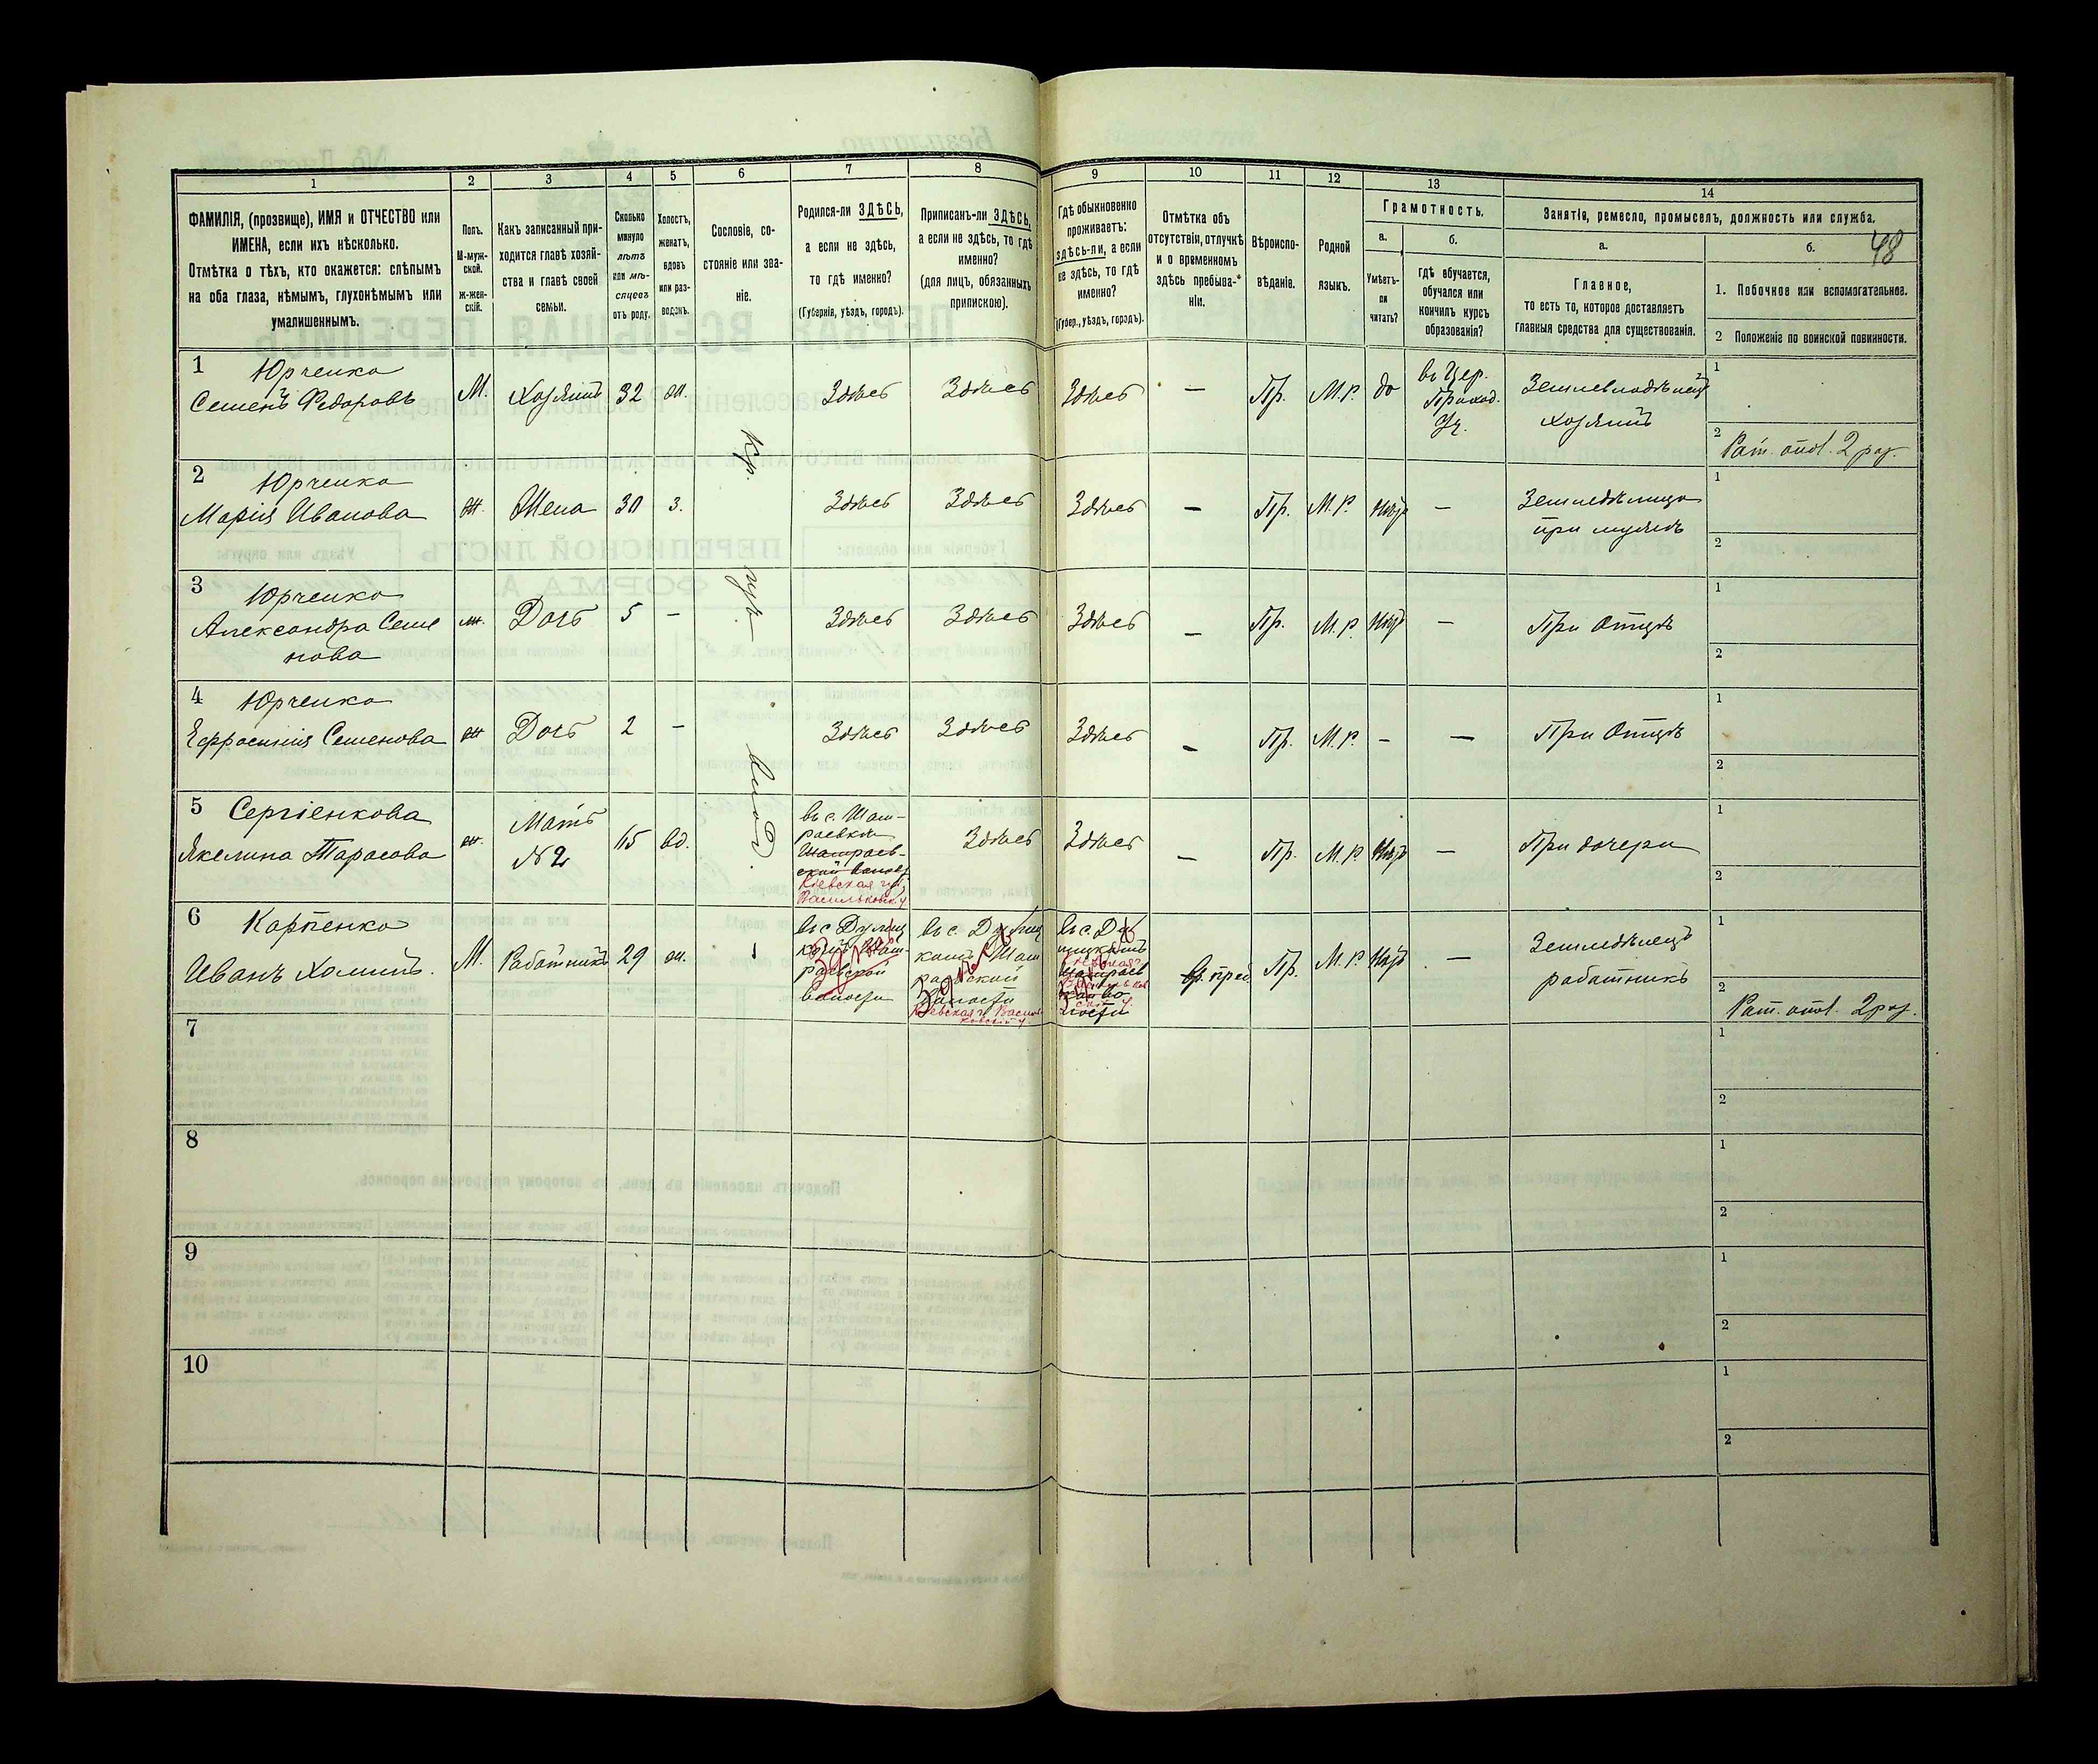 48
1 2 3 4 5 6 7 8 9 10 11 12 13 14
ФАМИЛІЯ, (прозвище), ИМЯ и ОТЧЕСТВО или
ИМЕНА, если ихъ нѣсколько.
Отмѣтка о тѣхъ, кто окажется: слѣпымъ
на оба глаза, нѣмымъ, глухонѣмымъ или
умалишеннымъ.
Полъ.
М-муж-
ской.
ж-жен-
скій.
Какъ записанный при-
ходится главѣ хозяй-
ства и главѣ своей
семьи.
Сколько
минуло
лѣтъ
или мѣ-
сяцевъ
отъ роду.
Холостъ,
женатъ,
вдовъ
или раз-
веденъ.
Сословіе, со-
стояніе или зва-
ніе.
Родился-ли ЗДѢСЬ,
а если не здѣсь,
то гдѣ именно?
(Губернія, уѣздъ, городъ).
Приписанъ-ли ЗДѢСЬ,
а если не здѣсь, то гдѣ
именно?
(для лицъ, обязанныхъ
припискою).
Гдѣ обыкновенно
проживаетъ:
здѣсь-ли, а если
не здѣсь, то гдѣ
именно?
(Губер., уѣздъ, городъ).
Отмѣтка объ
отсутствіи, отлучкѣ
и о временномъ
здѣсь пребыва-
ніи.
Вѣроиспо-
вѣданіе.
Родной
языкъ.
Грамотность.
а.
Умѣетъ-
ли
читать?
б.
гдѣ обучается,
обучался или
кончилъ курсъ
образованія?
Занятіе, ремесло, промыселъ, должность или служба.
а.
Главное,
то есть то, которое доставляетъ
главныя средства для существованія.
б.
1. Побочное или вспомогательное.
2 Положеніе по воинской повинности.
1 Юрченко
Семенъ Федоровъ
М.
Хозяинъ
32
Здѣсь
Здѣсь
Здѣсь
—
Пр.
М.р.
да
въ Цер.
Приход.
Уч.
Землевладѣлецъ
хозяинъ
1
2 Рат. опол. 2 раз.
Кр.
2 Юрченко
Марія Иванова
ж.
Жена
30
з.
Здѣсь
Здѣсь
Здѣсь
—
Пр.
М.р.
нѣтъ
—
Земледѣлица
при мужѣ
1
2
3 Юрченко
Александра Семе
нова
ж.
Дочь
5
—
Здѣсь
Здѣсь
Здѣсь
—
Пр.
М.р.
Нѣтъ
—
При Отцѣ
1
2
4 Юрченко
Ефросинія Семенова
ж
Дочь
2
—
Здѣсь
Здѣсь
Здѣсь
—
Пр.
М.р.
—
—
При Отцѣ
1
2
5 Сергіенкова
Якелина Тарасова
ж.
Мать
№ 2
65
вд.
въ с. Шам-
раевки
Шамраев-
ской волос.
Кіевская губ.
Васильковск. у.
Здѣсь
Здѣсь
—
Пр.
М.р
Нѣтъ
—
При дочери
1
2
6 Карпенко
Иванъ Хоминъ.
М.
Работникъ
29
раевской
волости
раевской
волости
Кіевская г. Василь
ковскій у.
вр. преб.
Пр.
М.р.
Нѣтъ
—
Земледѣлецъ
работникъ
1
2 Рат. опол. 2 раз.
7
1
2
8
1
2
9
1
2
10
1
2